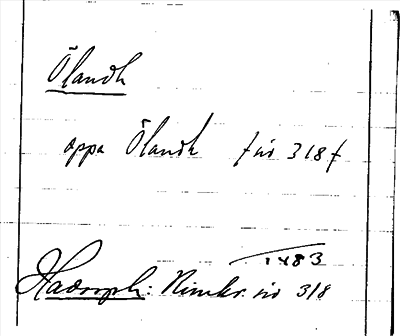 Ölandh
oppa Ölandh f nr 318 f
1483
Hadorph: Rimkr. nr 318